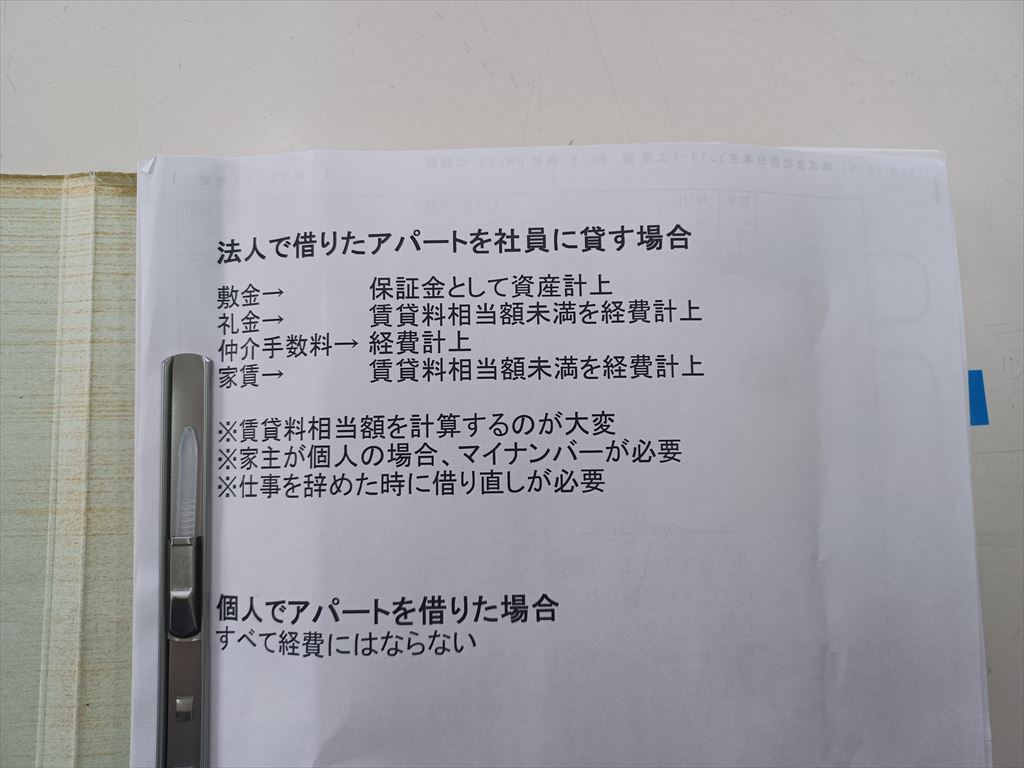 法人で借りたアパートを社員に貸す場合
敷金→ 保証金として資産計上
礼金→ 賃貸料相当額未満を経費計上
仲介手数料→ 経費計上
家賃→ 賃貸料相当額未満を経費計上
※賃貸料相当額を計算するのが大変
※家主が個人の場合、マイナンバーが必要
※仕事を辞めた時に借り直しが必要
個人でアパートを借りた場合
すべて経費にはならない